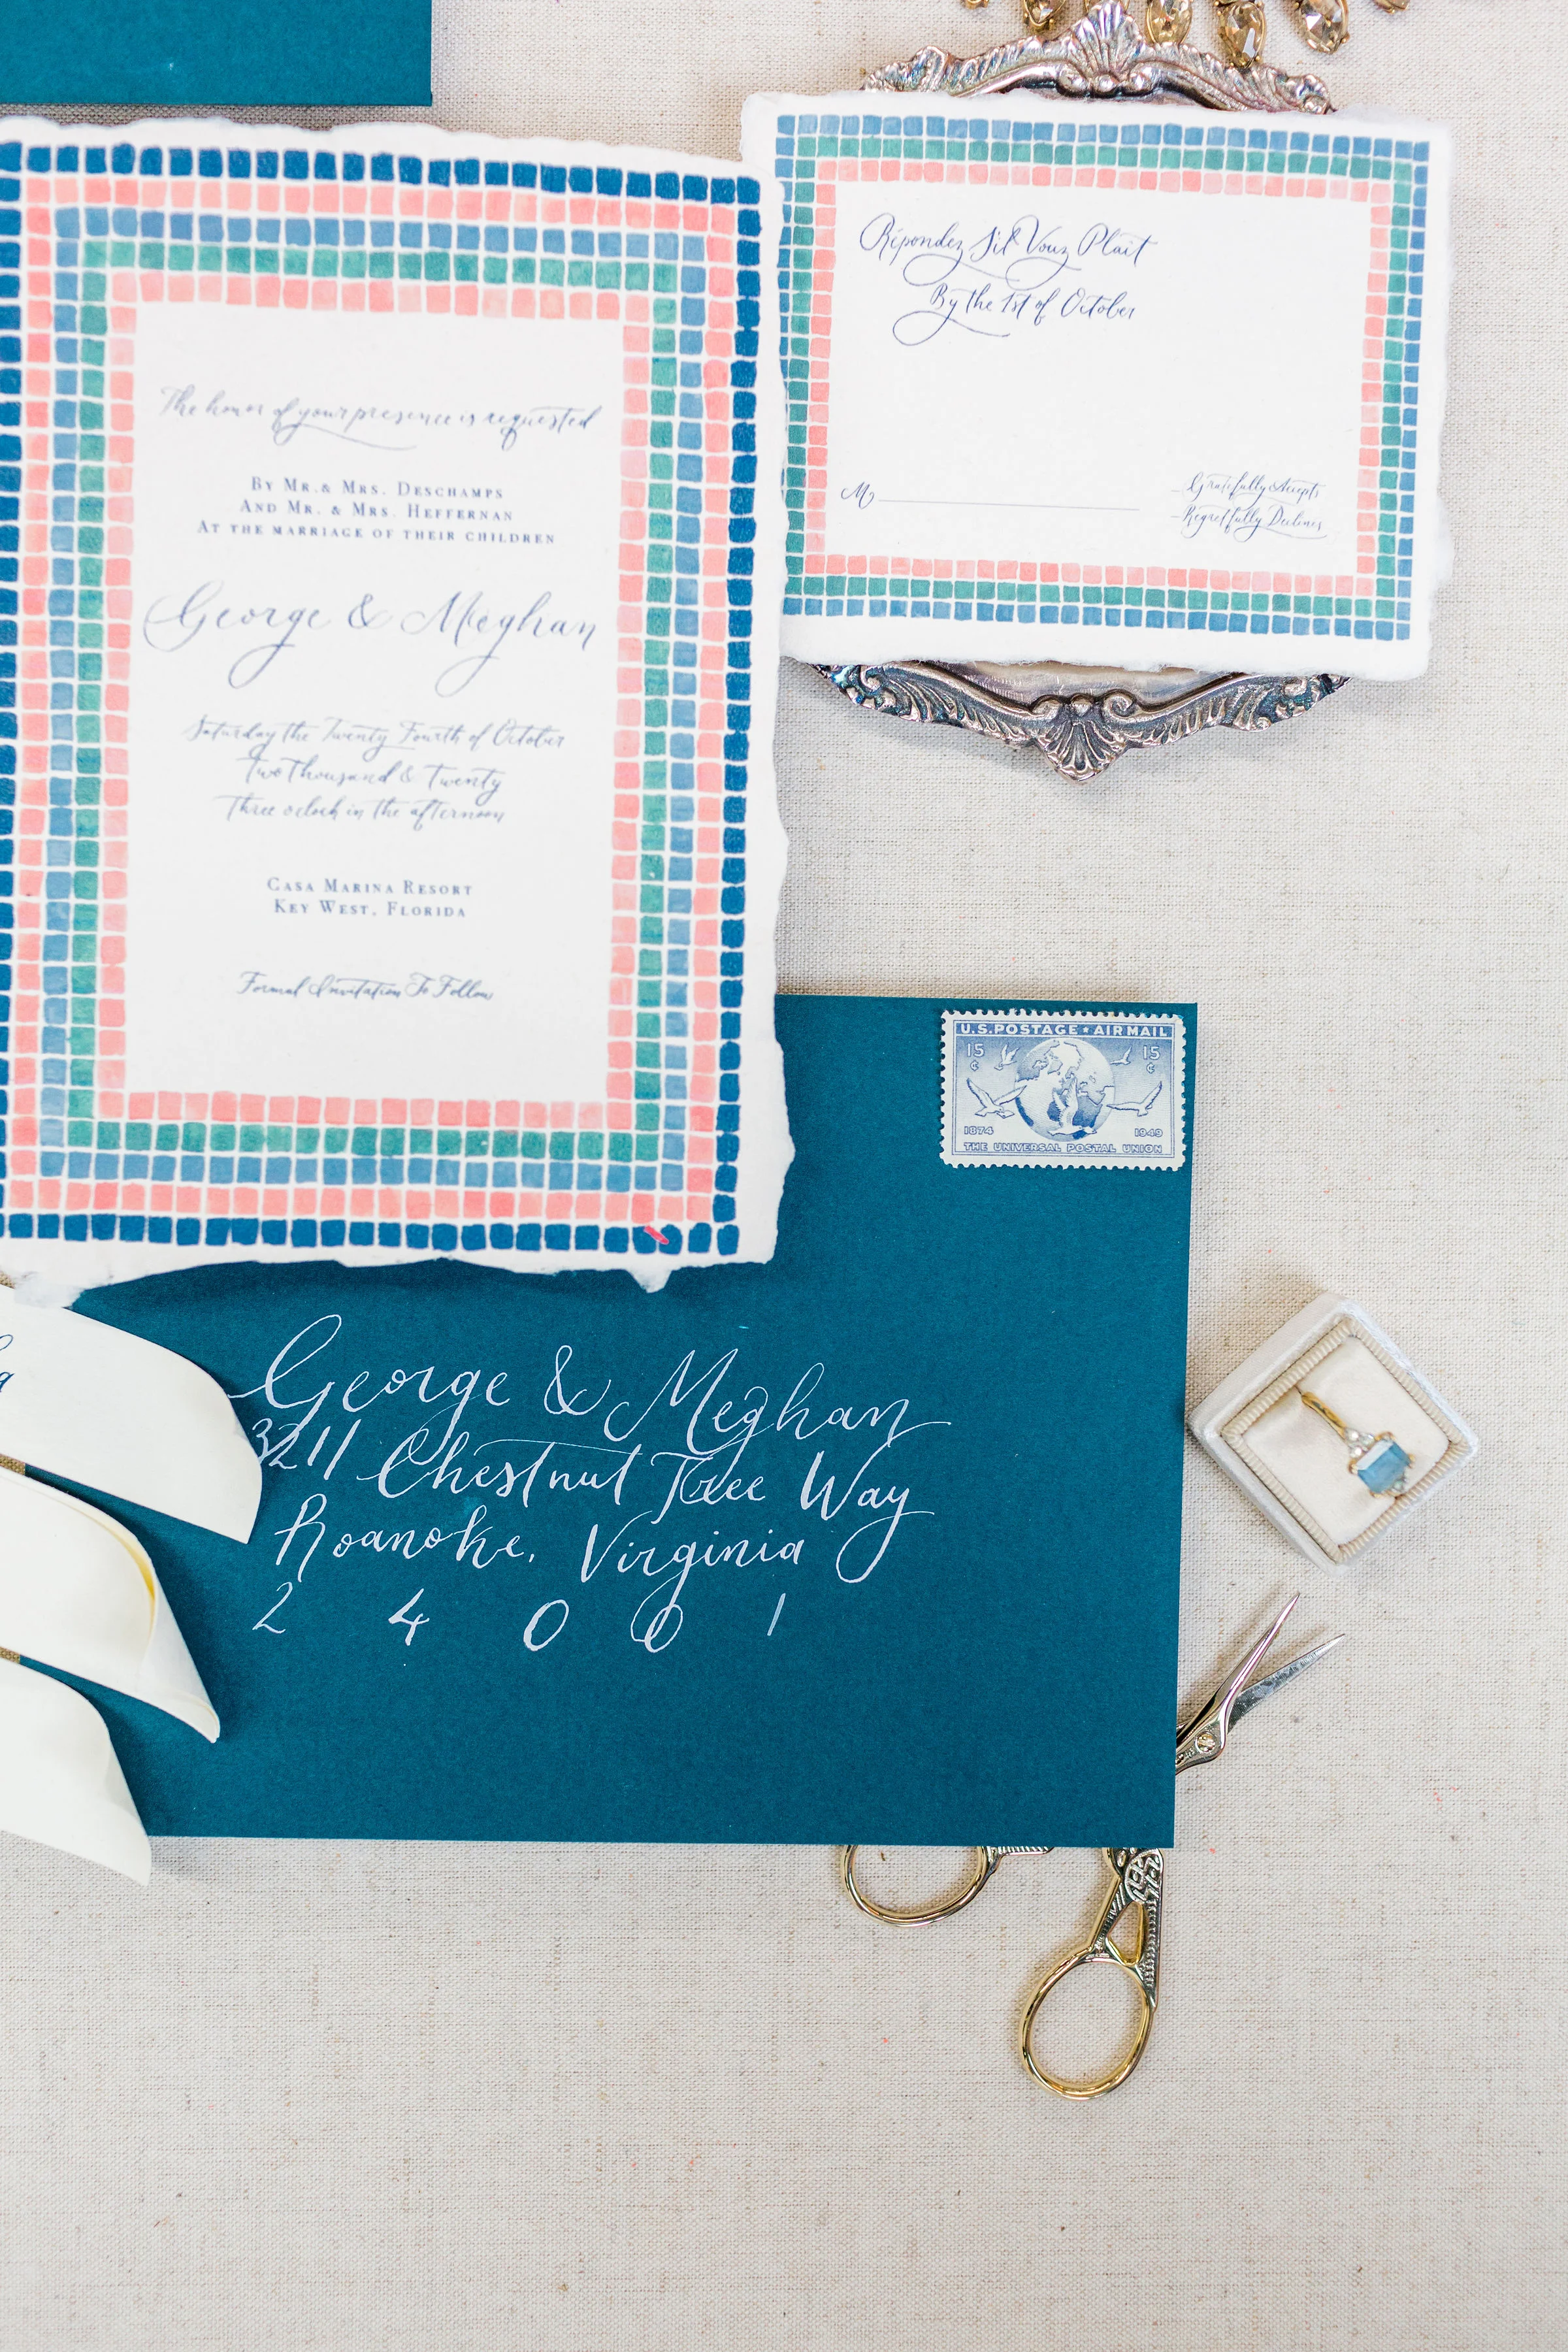 The honor of your presence is requested
By Mr. & Mrs. Deschamps
And Mr. & Mrs. Heffernan
At the marriage of their children
George & Meghan
Saturday the Twenty Fourth of October
Two Thousand & Twenty
Three oclock in the afternoon
Casa Marina Resort
Key West, Florida
Formal Invitation To Follow
Répondez Sil Vouz Plait
By the 1st of October
M
Gratefully Accepts
Regretfully Declines
U.S. POSTAGE ★ AIR MAIL
15 ¢ 15 ¢
1874 1949
THE UNIVERSAL POSTAL UNION
George & Meghan
3211 Chestnut Tree Way
Roanoke, Virginia
2 4 0 0 1